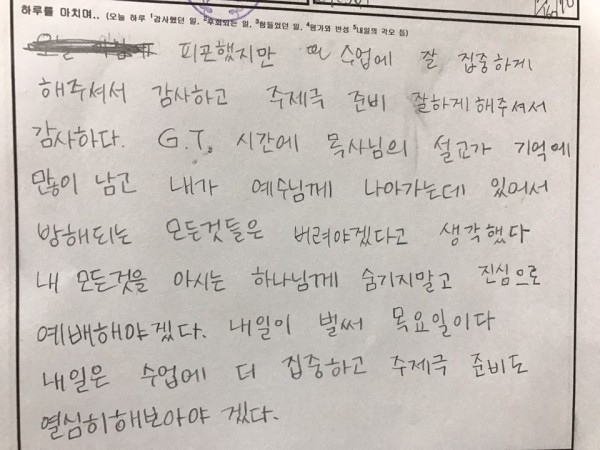 하루를 마치며.. (오늘 하루 ¹감사했던 일, ²후회되는 일, ³힘들었던 일, ⁴평가와 반성 ⁵내일의 각오 등)
피곤했지만 수업에 잘 집중하게
해주셔서 감사하고 주제극 준비 잘하게해주셔서
감사하다. G.T. 시간에 목사님의 설교가 기억에
많이 남고 내가 예수님께 나아가는데 있어서
방해되는 모든것들은 버려야겠다고 생각했다
내 모든것을 아시는 하나님께 숨기지말고 진심으로
예배해야겠다. 내일이 벌써 목요일이다
내일은 수업에 더 집중하고 주제극 준비도
열심히해보아야 겠다.